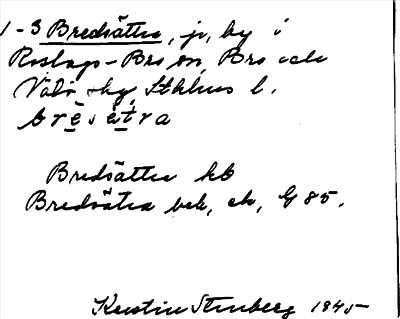 1-3 Bredsättra, jr, by i
Roslags-Bro sn, Bro och
Vätö skg, Sthlms l.
bresätra
Bredsättra kb
Bredsätra bek, ek, G 85.
Kerstin Stenberg 1945